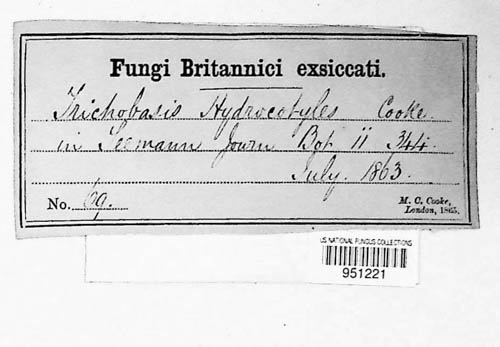 Fungi Britannici exsiccati.
Trichobasis Hydrocotyles Cooke.
in Seemann Journ Bot ii 344.
July. 1863.
No. 69.
M. C. Cooke,
London, 1865.
US NATIONAL FUNGUS COLLECTIONS
951221